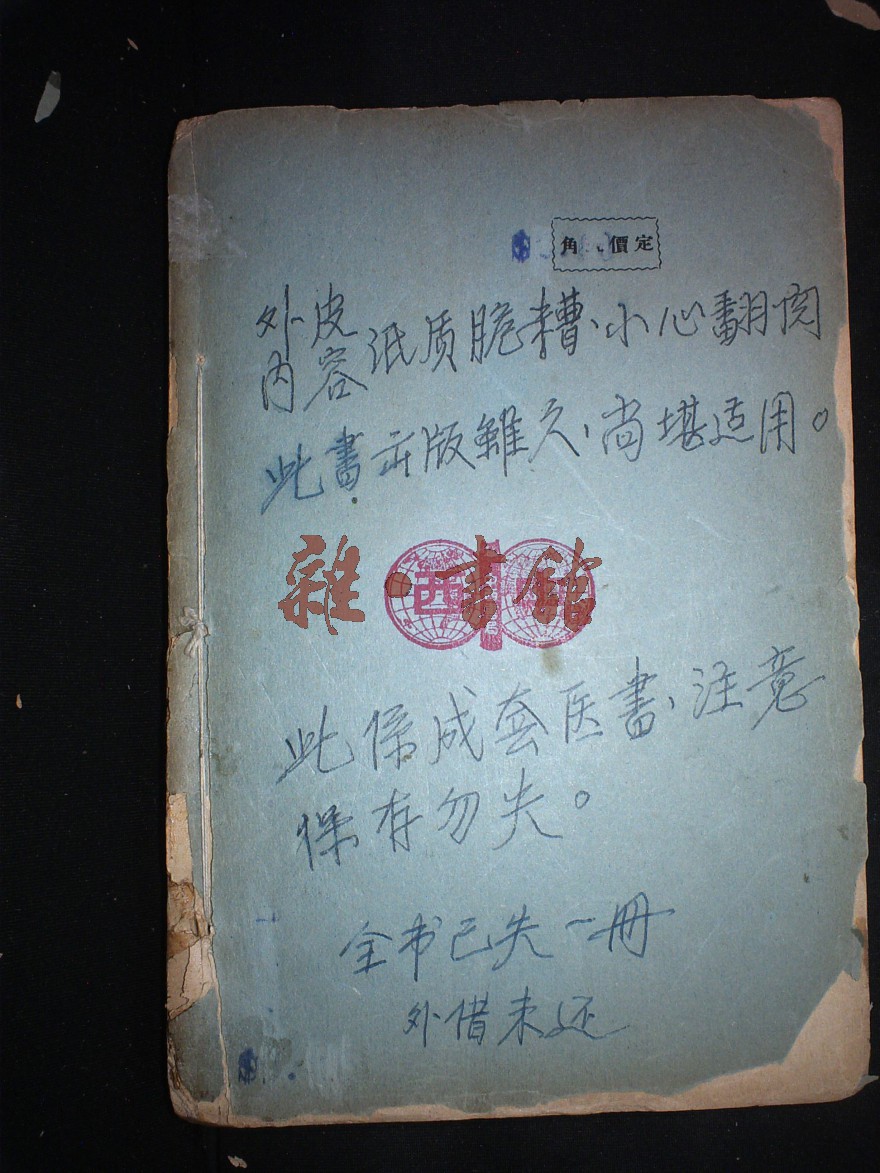 角 價定
外皮
内容 纸质脆糟、小心翻阅
此書出版雖久、尚堪适用。
雜·書館
西
此係成套医書、注意
保存勿失。
全书已失一册
外借未还